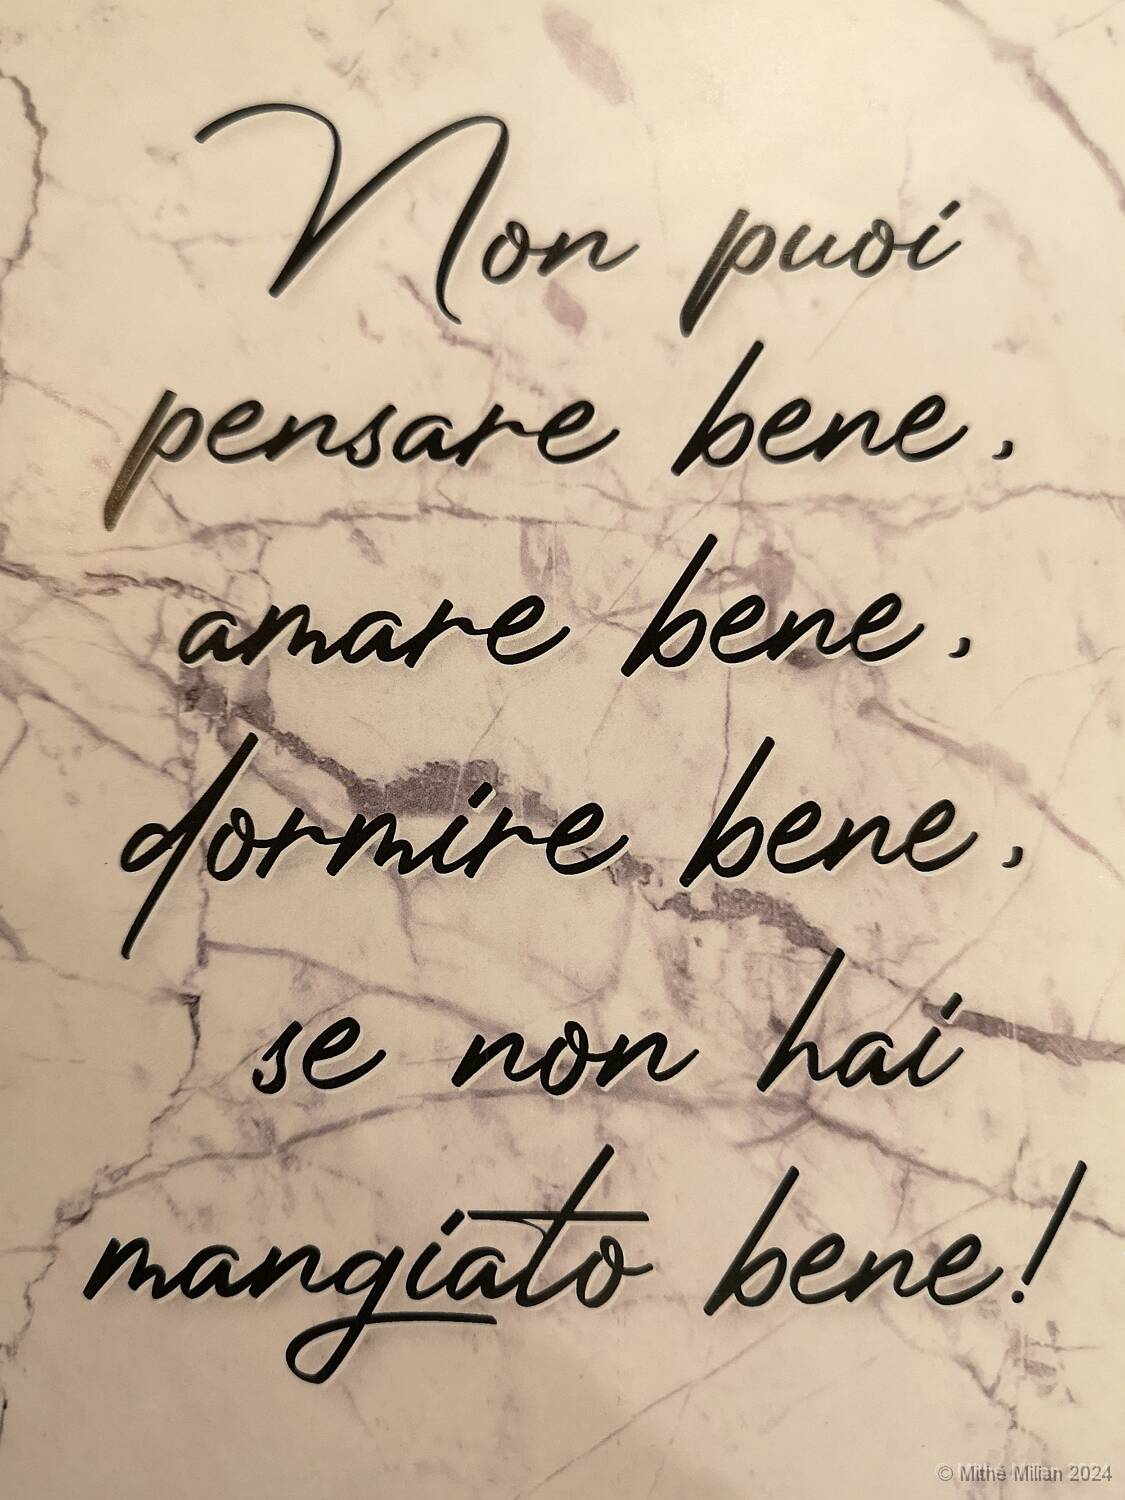 Non puoi
pensare bene,
amare bene,
dormire bene,
se non hai
mangiato bene!
© Mithé Milian 2024